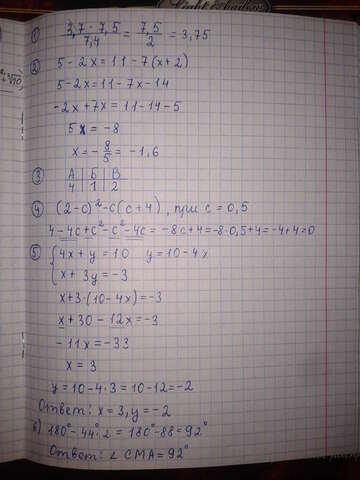 ① 3,7 · 7,5 / 7,4 = 7,5 / 2 = 3,75
② 5 - 2x = 11 - 7(x+2)
5 - 2x = 11 - 7x - 14
-2x + 7x = 11 - 14 - 5
5x = -8
x = -8/5 = -1,6
③ А | Б | В
4 | 1 | 2
④ (2-c)² - c(c+4), при c = 0,5
4 - 4c + c² - c² - 4c = -8c + 4 = -8·0,5 + 4 = -4 + 4 = 0
⑤ { 4x + y = 10 y = 10 - 4x
x + 3y = -3
x + 3·(10 - 4x) = -3
x + 30 - 12x = -3
-11x = -33
x = 3
y = 10 - 4·3 = 10 - 12 = -2
Ответ: x = 3, y = -2
6) 180° - 44°·2 = 180° - 88 = 92°
Ответ: ∠ CMA = 92°